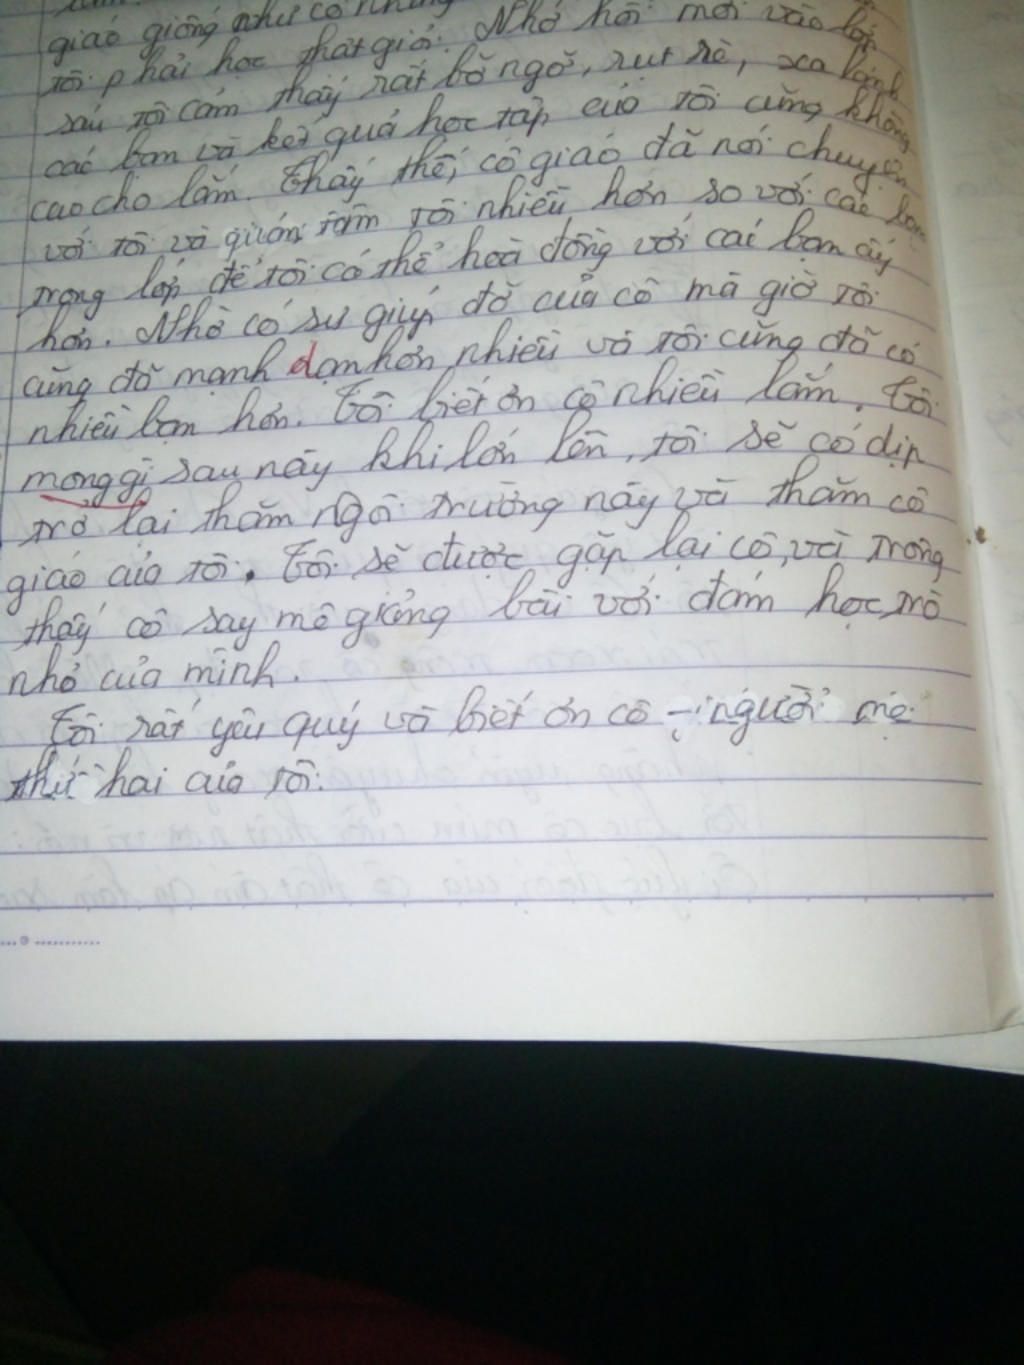 giáo giống như có những
tôi phải học thật giỏi. Nhớ hồi mới vào lớp
sáu tôi cảm thấy rất bỡ ngỡ, rụt rè, xa lánh
các bạn và kết quả học tập của tôi cũng không
cao cho lắm. Thấy thế, cô giáo đã nói chuyện
với tôi và quan tâm tôi nhiều hơn so với các bạn
trong lớp để tôi có thể hoà đồng với các bạn ấy
hơn. Nhờ có sự giúp đỡ của cô mà giờ tôi
cũng đã mạnh dạn hơn nhiều và tôi cũng đã có
nhiều bạn hơn. Tôi biết ơn cô nhiều lắm. Tôi
mong gì sau này khi lớn lên, tôi sẽ có dịp
trở lại thăm ngôi trường này và thăm cô
giáo của tôi. Tôi sẽ được gặp lại cô, và trông
thấy cô say mê giảng bài với đám học trò
nhỏ của mình.
Tôi rất yêu quý và biết ơn cô - người mẹ
thứ hai của tôi.